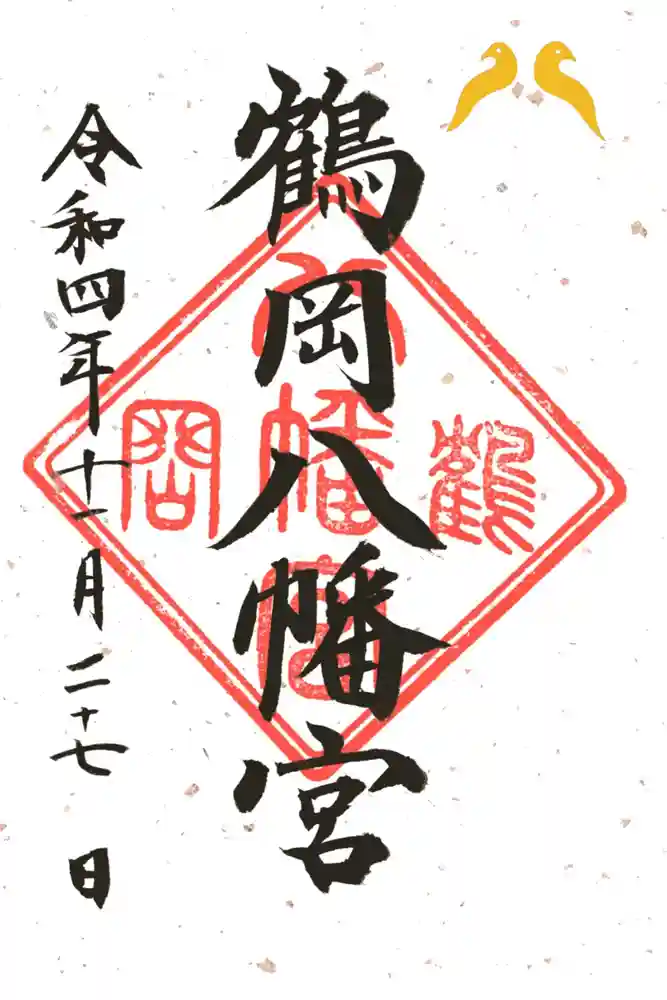 鶴岡八幡宮
鶴岡
八幡宮
令和四年十一月二十七日